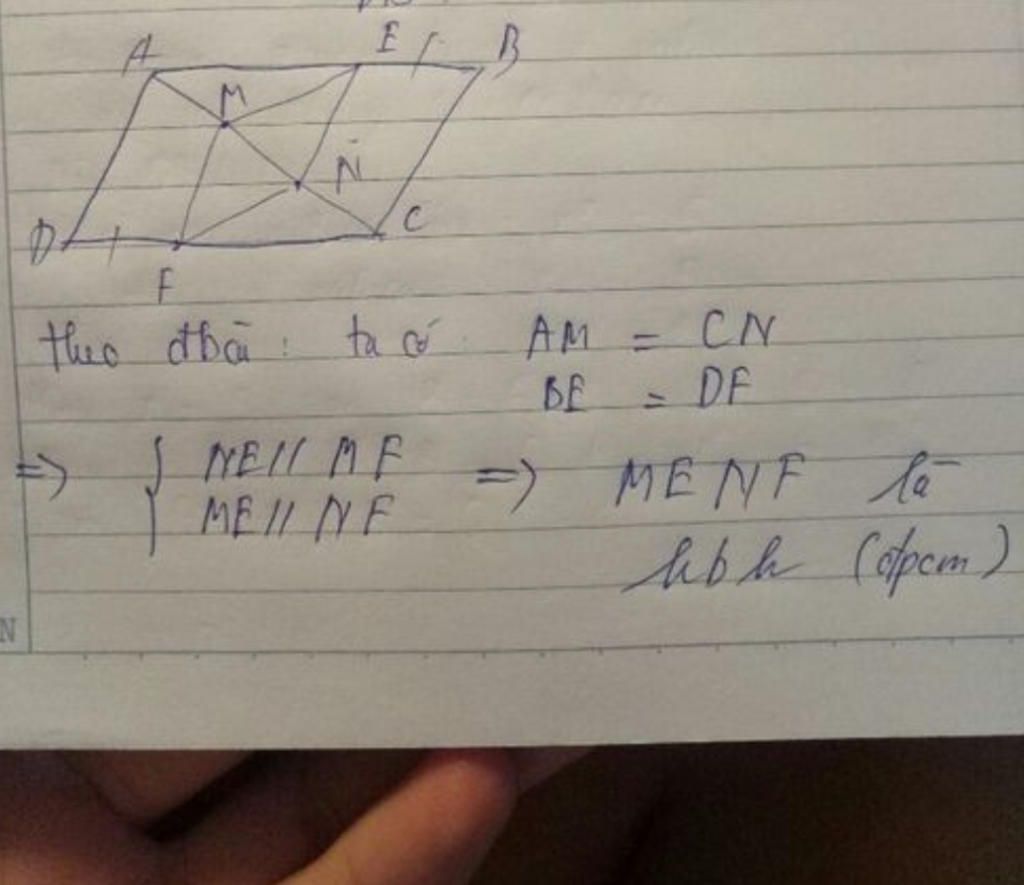 A E B
M
N
D C
F
theo đbài: ta có AM = CN
BE = DF
=> { NE // MF
ME // NF => MENF là
hbh (đpcm)
N